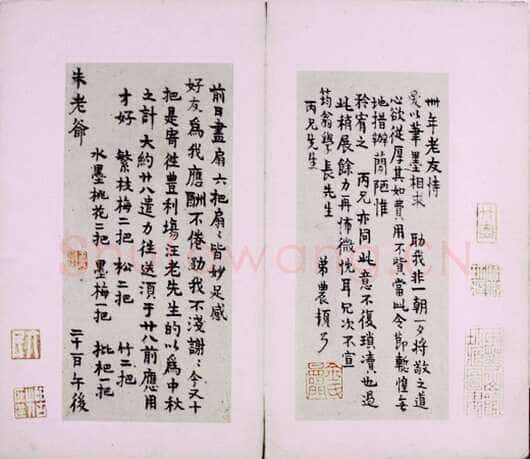 卅年老友情
以筆墨相求 助我非一朝一夕将敝之道
心欲從厚其如費用不貲當此令節輒惶無
地措辦簡陋惟
矜宥之 丙兄亦同此意不復瑣瀆也過
此稍展餘力再佈微忱耳 次不宣
筠翁學長先生 弟農頓
丙兄先生
前日畫扇六把扇〻皆妙足感
好友為我應酬不倦助我不淺謝〻今又十
把是寄往豊利塲汪老先生的以為中秋
之計 大約廿八遣力往送須于廿八前應用
才好 繁枝梅二把 松二把 竹二把
水墨桃花二把 墨梅一把 枇杷一把
朱老爺 二十日午後